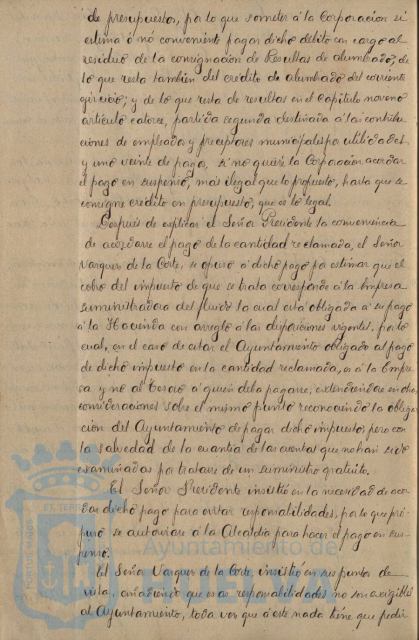 de presupuestos, por lo que somete á la Corporacion si
estima ó nó conveniente pagar dicho débito con cargo al
residuo de la consignación de Resultas de alumbrado, de
lo que resta tambien del crédito de alumbrado del corriente
ejercicio, y de lo que resta de resultas en el Capítulo noveno
artículo catorce, partida segunda destinada á las contribu-
ciones de empleados y preceptores municipales por utilidades
y uno veinte de pagos, si no quiere la Corporacion acordar
el pago en suspenso, más ilegal que lo propuesto, hasta que se
consigne crédito en presupuesto, que es lo legal.
Después de esplicar el Señor Presidente la conveniencia
de acordarse el pago de la cantidad reclamada, el Señor
Vazquez de la Corte, se opuso á dicho pago por estimar que el
cobro del impuesto de que se trata corresponde á la Empresa
suministradora del fluido la cual está obligada á su pago
á la Hacienda con arreglo á las disposiciones vigentes, por lo
cual, en el caso de estar el Ayuntamiento obligado al pago
de dicho impuesto en la cantidad reclamada, es á la Empre-
sa y no al Tesoro á quien deba pagarse, extendiéndose en otras
consideraciones sobre el mismo punto reconociendo la obliga-
ción del Ayuntamiento de pagar dicho impuesto pero con
la salvedad de la cuantia de las cuentas que no han sido
examinadas por tratarse de un suministro gratuito.
El Señor Presidente insistió en la necesidad de acor-
dar dicho pago para evitar responsalidades, por lo que pro-
puso se autorizase á la Alcaldía para hacer el pago en sus-
penso.
El Señor Vazquez de la Corte, insistió en sus puntos de
vista, añadiendo que esas responsabilidades no son exigibles
al Ayuntamiento, toda vez que á este nada tiene que pedir
Ayuntamiento de
HUELVA